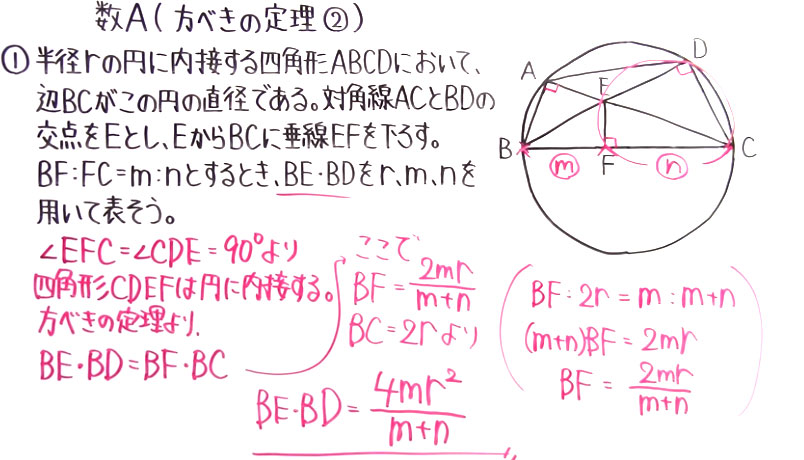 数A(方べきの定理②)
① 半径rの円に内接する四角形ABCDにおいて、
辺BCがこの円の直径である。対角線ACとBDの
交点をEとし、EからBCに垂線EFを下ろす。
BF:FC=m:nとするとき、BE・BDをr、m、nを
用いて表そう。
A
D
E
B
F
C
m
n
∠EFC=∠CDE=90°より
四角形CDEFは円に内接する。
方べきの定理より、
BE・BD=BF・BC
ここで
BF=2mr/m+n
BC=2rより
BE・BD=4mr²/m+n
BF:2r=m:m+n
(m+n)BF=2mr
BF=2mr/m+n